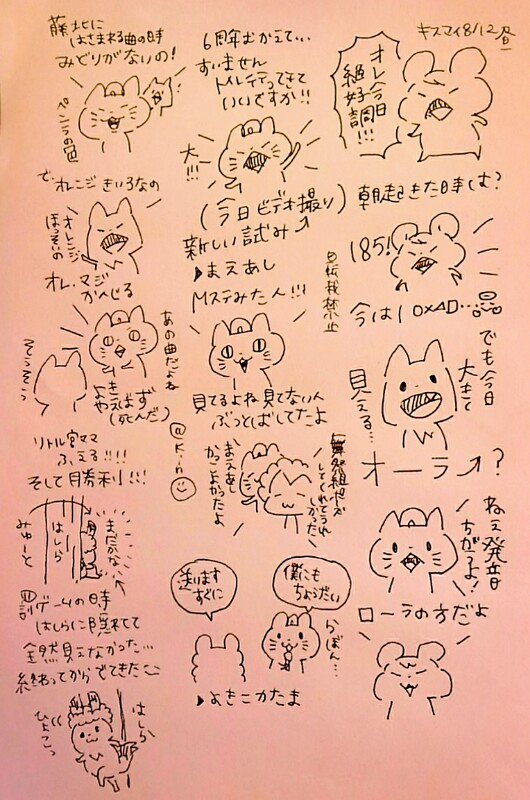 キスマイ8/12昼
オレ今日
絶好調!!!
朝起きた時しむ?
185!
今は10×△D…
でも今日
大きく
見える…
オーラ?
ねぇ発音
ちがうよ!
ローラの方だよ
6周年むかえて…
すいません
トイレ行ってきて
いいですか!!
大!!!
(今日ビデオ撮り)
新しい試み
まえあし
Mステみた人!!!
見てるよね見てない人
ぶっとばしてたよ
@k_in
自転載禁止
まえあし
かっこよかったよ
舞祭組ポーズ
してくれてうれ
しかった
送ります
すぐに
僕にも
ちょうだい
らぼん…
よきこかたま
藤北に
はさまれる曲の時
みどりがないの!
ペンラの色
でオレンジきいろなの
オレンジ
ほっそいの
オレ、マジ
かんじる
あの曲だよね
そうそう
きえば
よやくず
(死んだ)
リトル宮ママ
ふえる!!!!
そして勝利!!!
まだかな
はしら
みゅーと
罰ゲームの時
はしらに隠れてて
全然見えなかった…
終わってからでてきた
はしら
ひょこっ